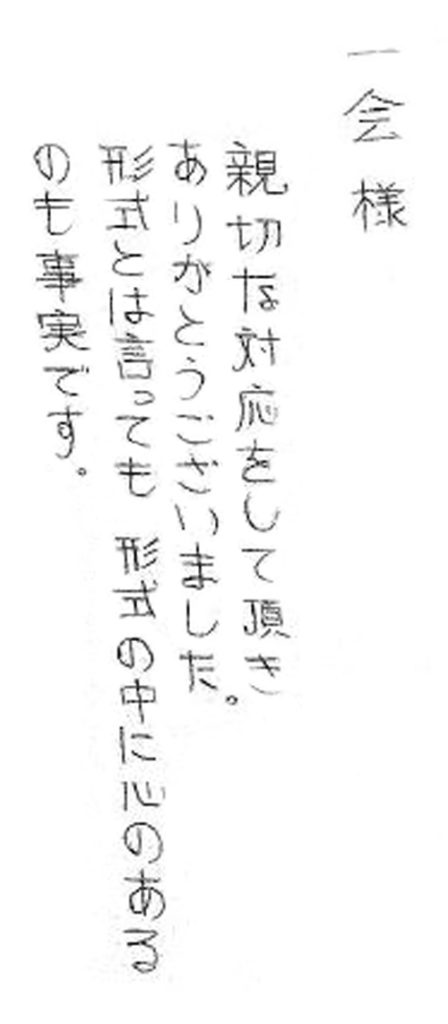 一会様
親切な対応をして頂き
ありがとうございました。
形式とは言っても 形式の中に心のある
のも事実です。